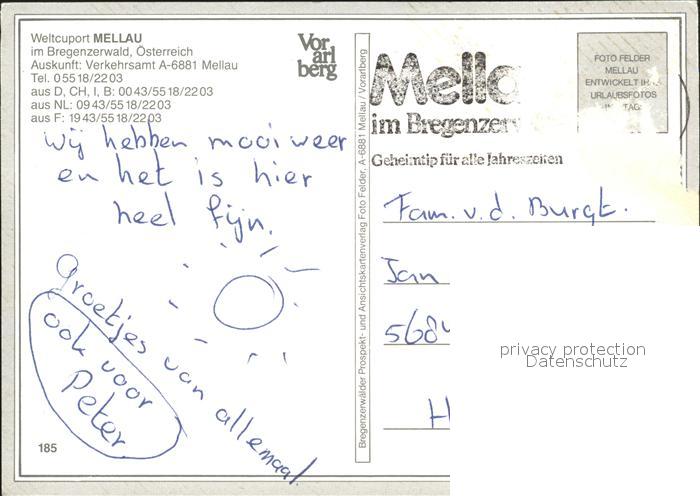 Weltcuport MELLAU
im Bregenzerwald, Österreich
Auskunft: Verkehrsamt A-6881 Mellau
Tel. 05518/2203
aus D, CH, I, B: 0043/5518/2203
aus NL: 0943/5518/2203
aus F: 1943/5518/2203
Vor
arl
berg
wij hebben mooi weer
en het is hier
heel fijn.
Groetjes van allemaal.
ook voor
Peter
185
Bregenzerwälder Prospekt- und Ansichtskartenverlag Foto Felder, A-6881 Mellau / Vorarlberg
Mella
im Bregenzerw
Geheimtip für alle Jahreszeiten
FOTO FELDER
MELLAU
ENTWICKELT IHRE
URLAUBSFOTOS
TAG
Fam. v.d. Burgt.
Jan
5684
H
privacy protection
Datenschutz